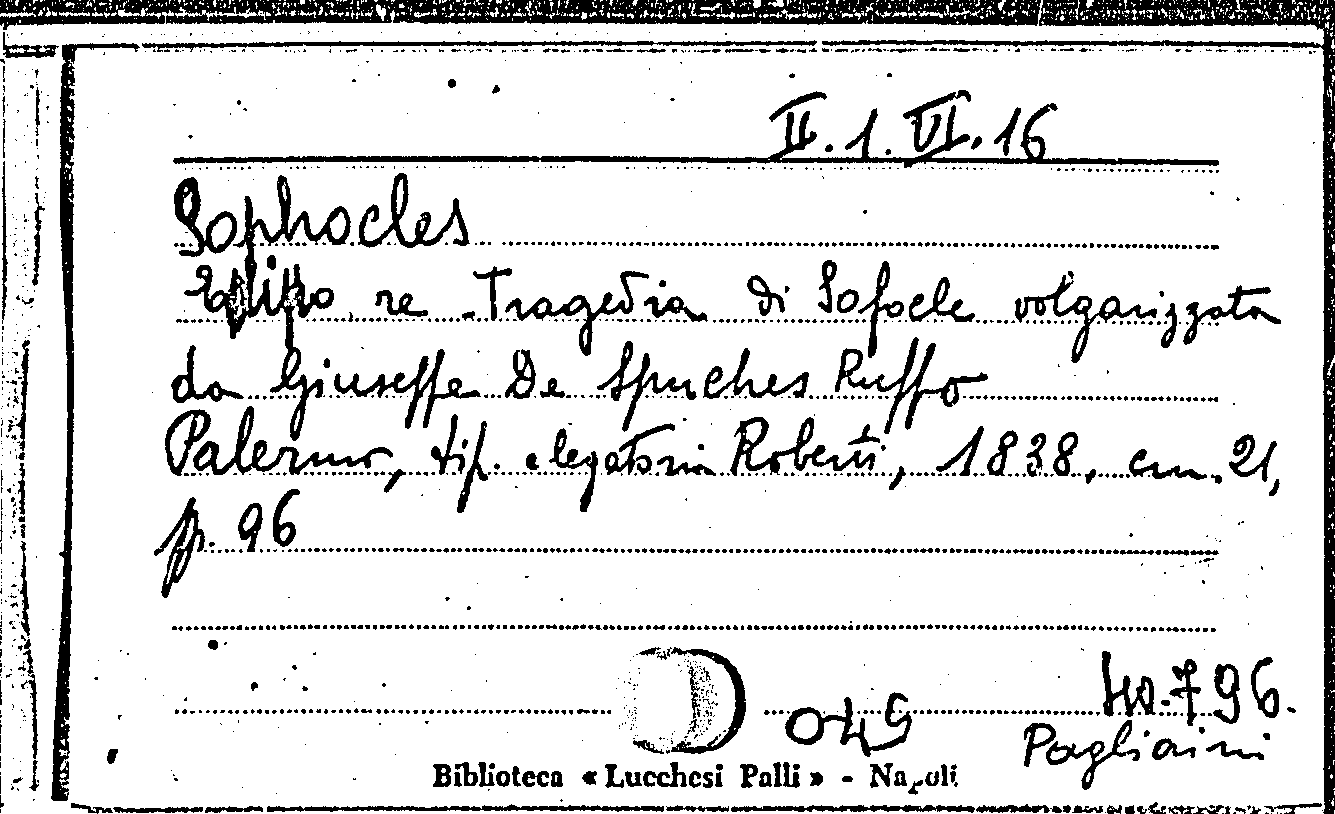 II. 1. VI. 16
Sophocles
Edippo re Tragedia di Sofocle volgarizzata
da Giuseppe De Spuches Ruffo
Palermo, tip. e legatoria Roberti, 1838, cm. 21,
pp. 96
049
796.
Pagliaini
Biblioteca « Lucchesi Palli » - Napoli